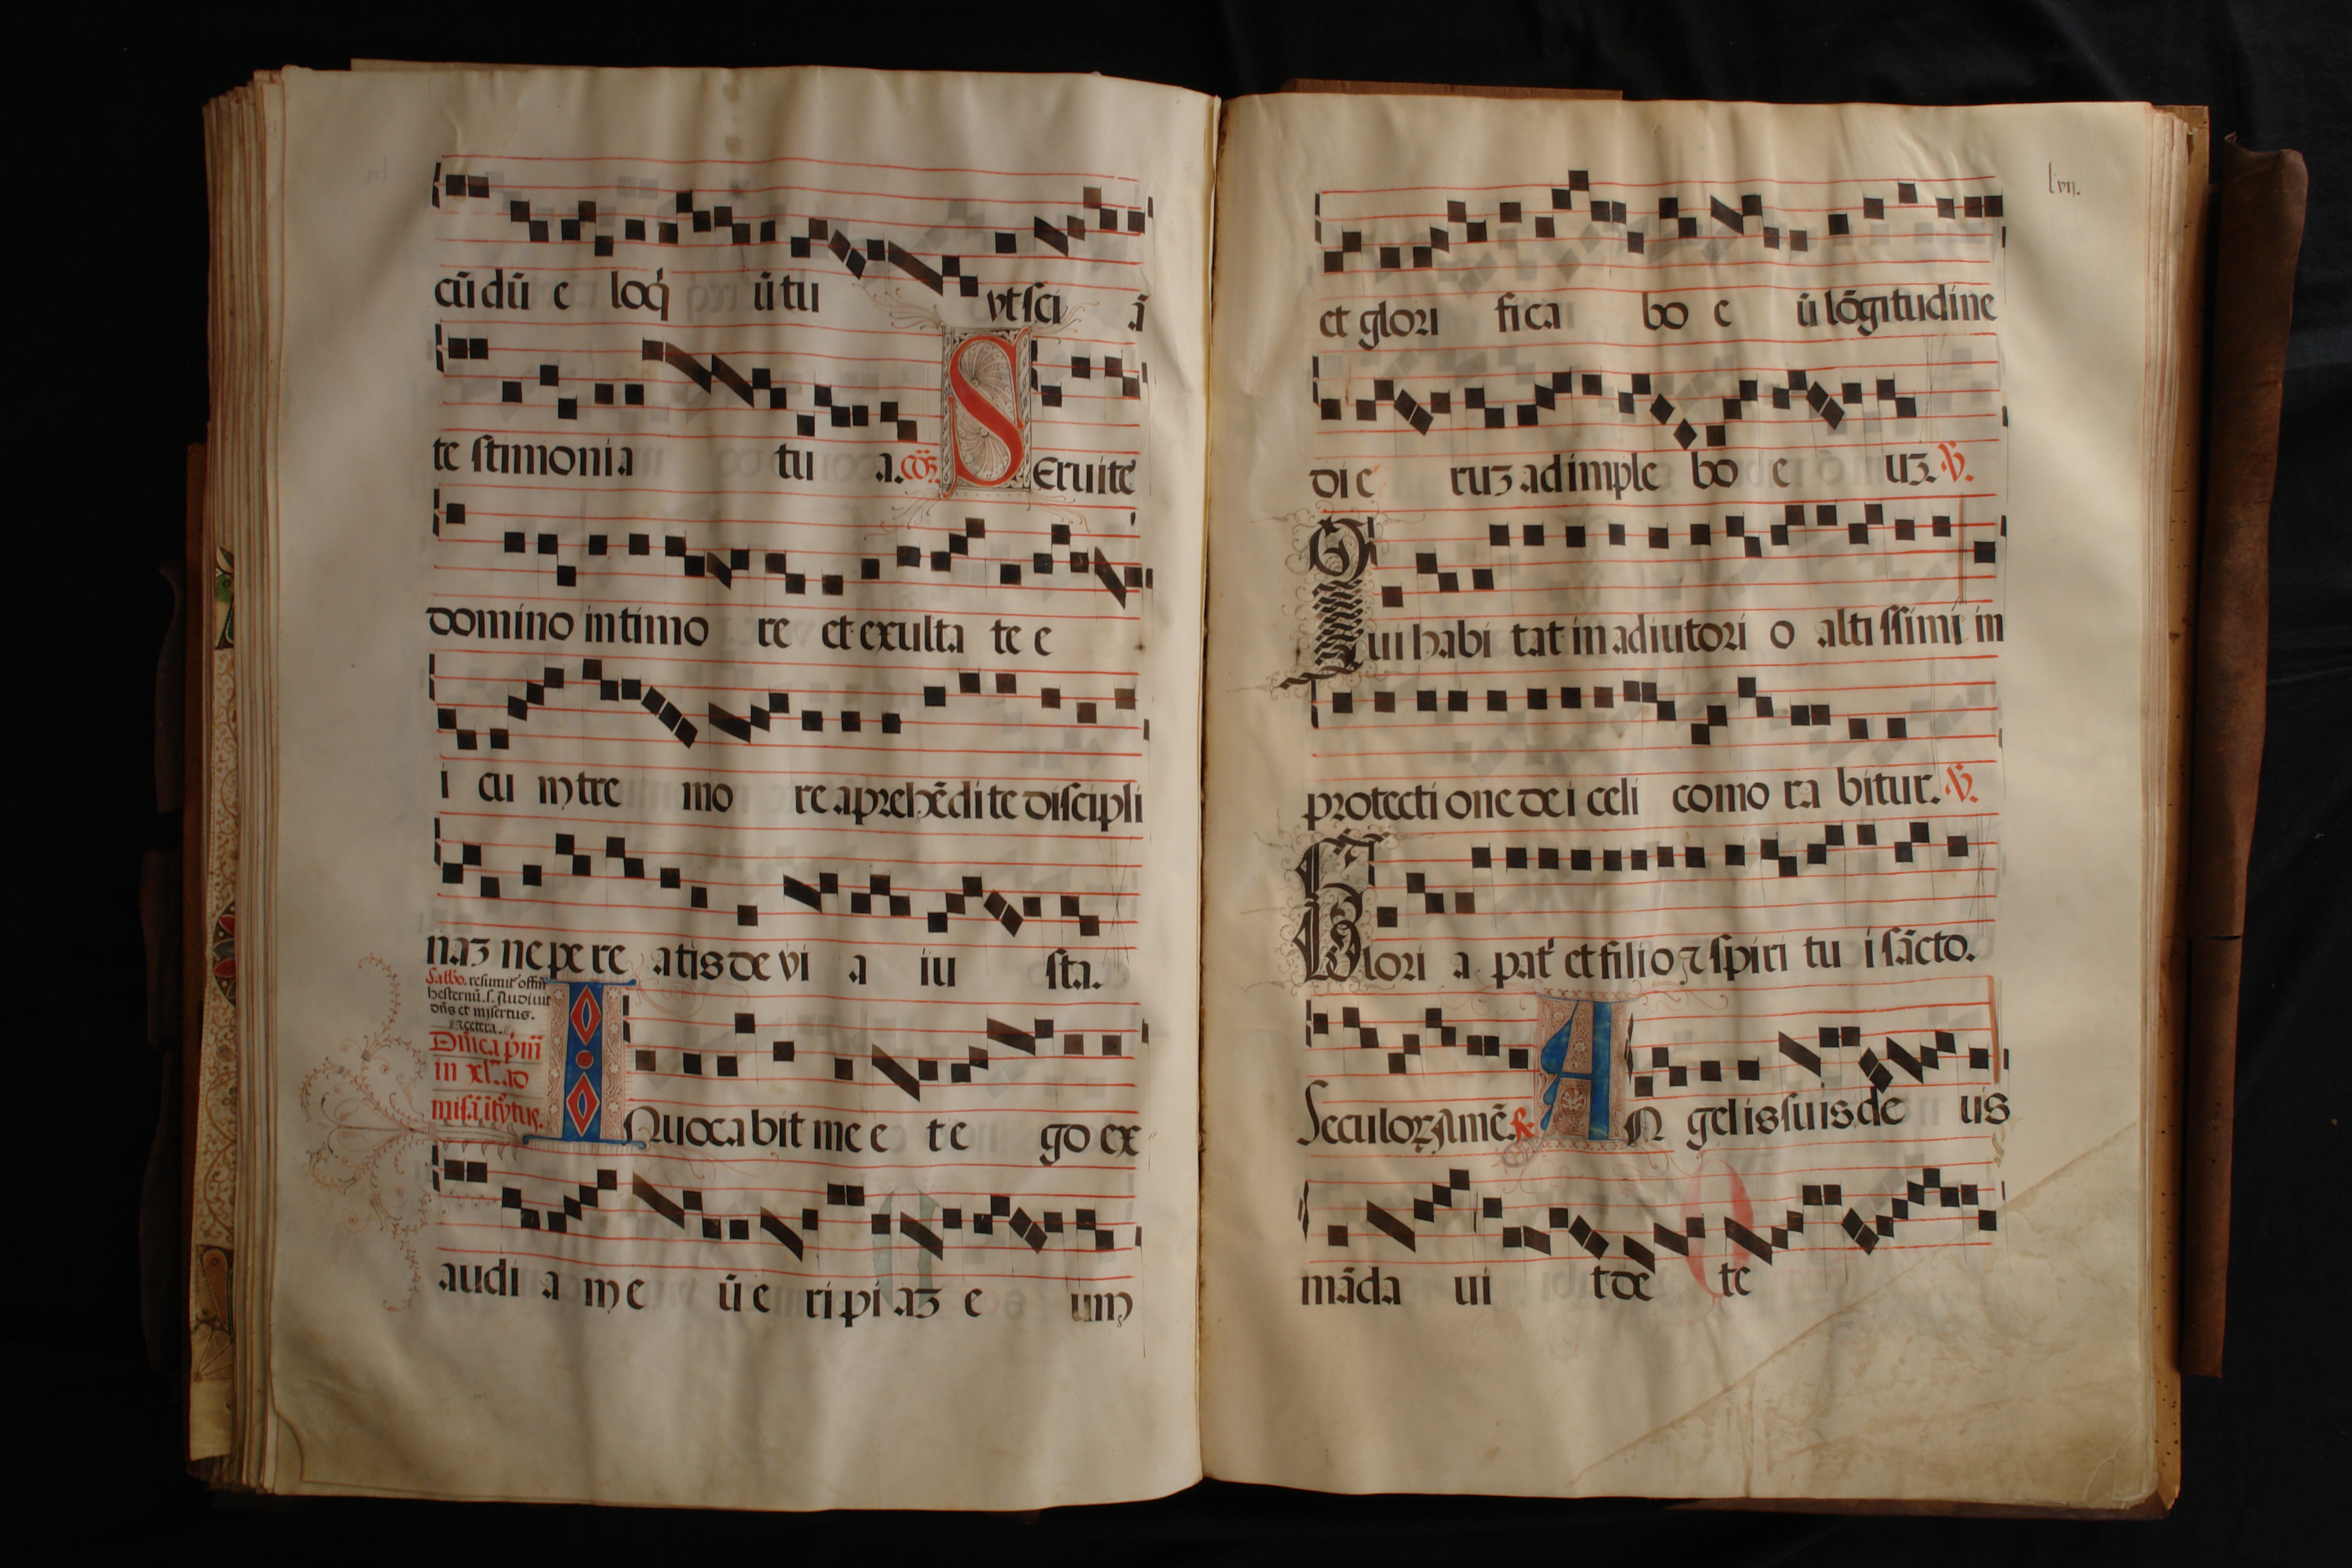 cũ dũ e loq̃ ũ tu vt sci ã
te stimonia tu a. cõ̃. Seruite
domino in timo re et exulta te e
i cu m tre mo re apreh̃edi te discipli
naʒ ne pe re atis de vi a iu sta.
Sabbo. resumit̃ offm̃
hesternũ. s. Audiuit
dñs et misertus.
ꝛ cetera.
Dñica p̃m̃
in xl.ᵃ ad
misã ĩtroytus.
INuocabit me e t e go ex
audi a m e ũ e ri pi aʒ e um
lvij.
et glori fi ca bo e ũ lõgitudine
di e ruʒ ad imple bo e uʒ. ℣.
Qui habi tat in adiutori o alti ssimi in
protecti one de i celi como ra bitur. ℣.
Glori a pat̃ et filio ꝛ spiri tu i sãcto.
Seculoꝝ Amẽ. ℟ AN gelis suis de us
mãda ui t de te